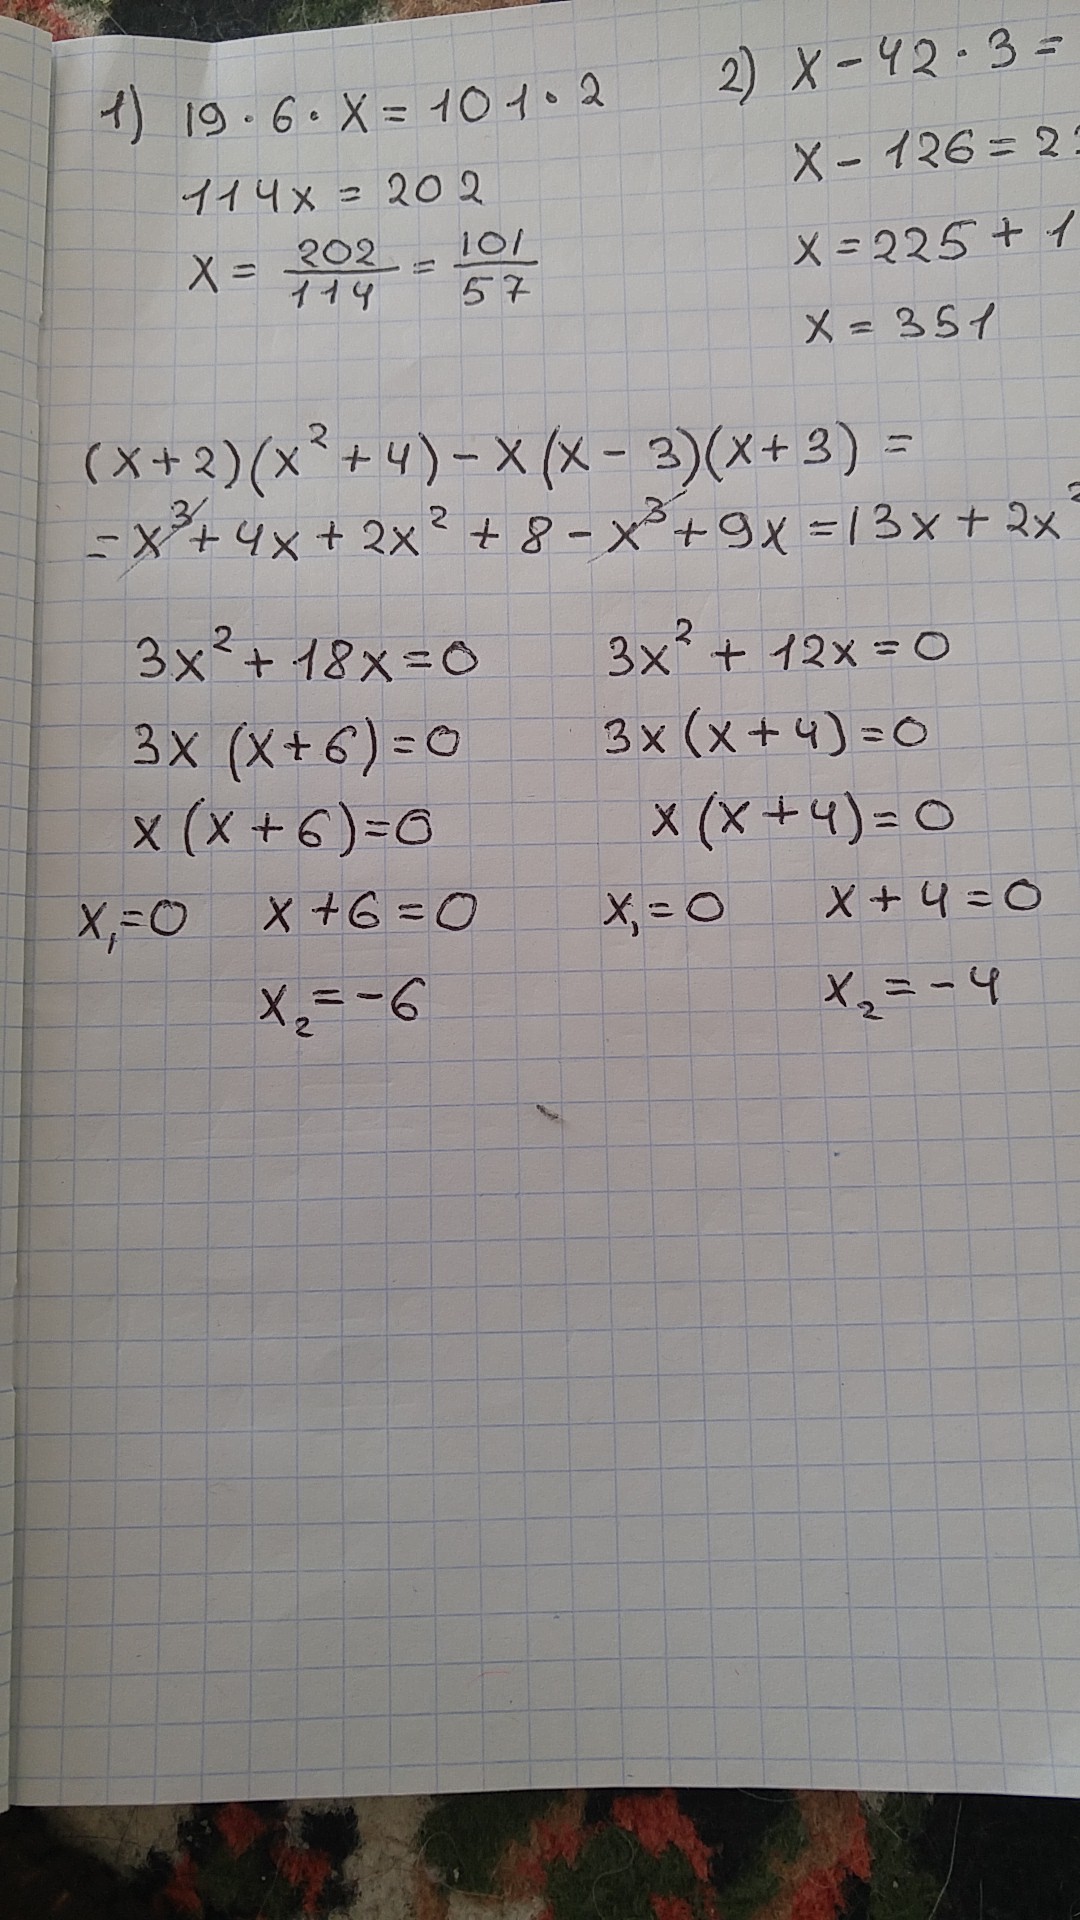 1) 19 · 6 · x = 101 · 2
114x = 202
x = 202/114 = 101/57
2) x - 42 · 3 =
x - 126 = 2
x = 225 + 1
x = 351
(x+2)(x² + 4) - x(x - 3)(x + 3) =
= x³ + 4x + 2x² + 8 - x³ + 9x = 13x + 2x²
3x² + 18x = 0
3x (x+6) = 0
x (x + 6) = 0
x₁ = 0 x + 6 = 0
x₂ = -6
3x² + 12x = 0
3x (x + 4) = 0
x (x + 4) = 0
x₁ = 0 x + 4 = 0
x₂ = -4